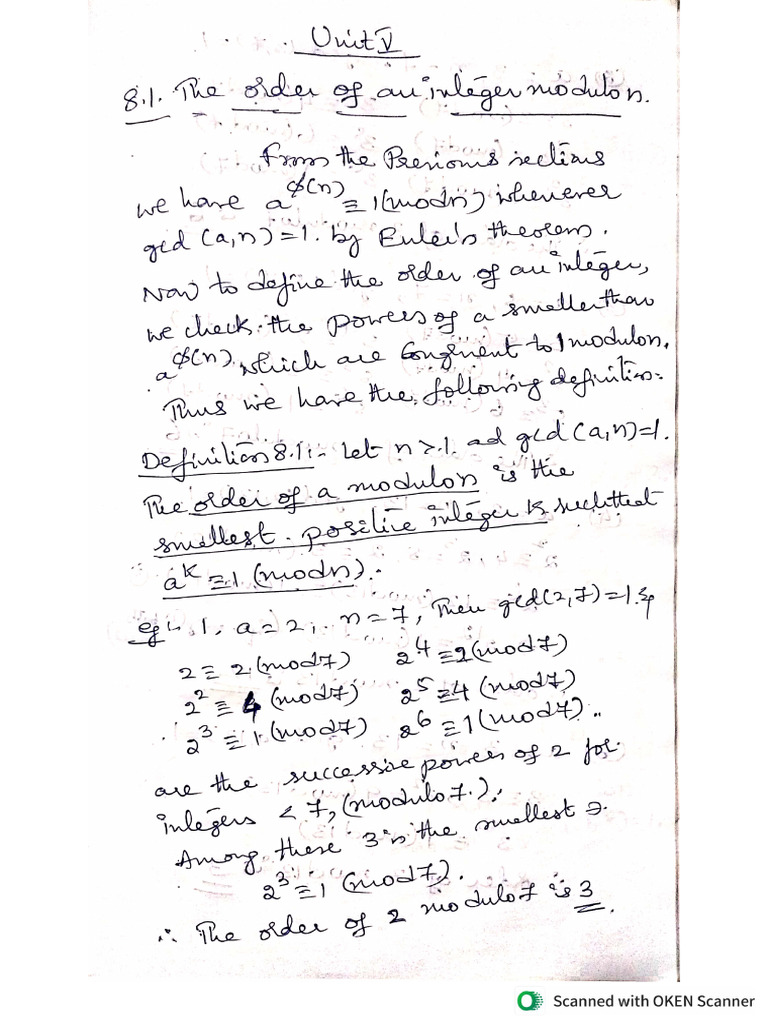 Unit V
8.1. The order of an integer modulo n.
From the Previous sections
we have a^φ(n) ≡ 1(mod n) whenever
gcd (a,n)=1. by Euler's theorem.
Now to define the order of an integer,
we check the powers of a smaller than
a^φ(n) which are congruent to 1 modulo n.
Thus we have the following definition:
Definition 8.1:- Let n>1. ad gcd(a,n)=1.
The order of a modulo n is the
smallest positive integer k such that
a^k ≡ 1 (mod n).
eg:- 1. a=2, n=7, Then gcd(2,7)=1. &
2 ≡ 2 (mod 7) 2^4 ≡ 2(mod 7)
2^2 ≡ 4 (mod 7) 2^5 ≡ 4 (mod 7)
2^3 ≡ 1 (mod 7) 2^6 ≡ 1 (mod 7)..
are the successive powers of 2 for
integers < 7, (modulo 7.).
Among these 3 is the smallest ∋
2^3 ≡ 1 (mod 7).
∴ The order of 2 modulo 7 is 3.
Scanned with OKEN Scanner